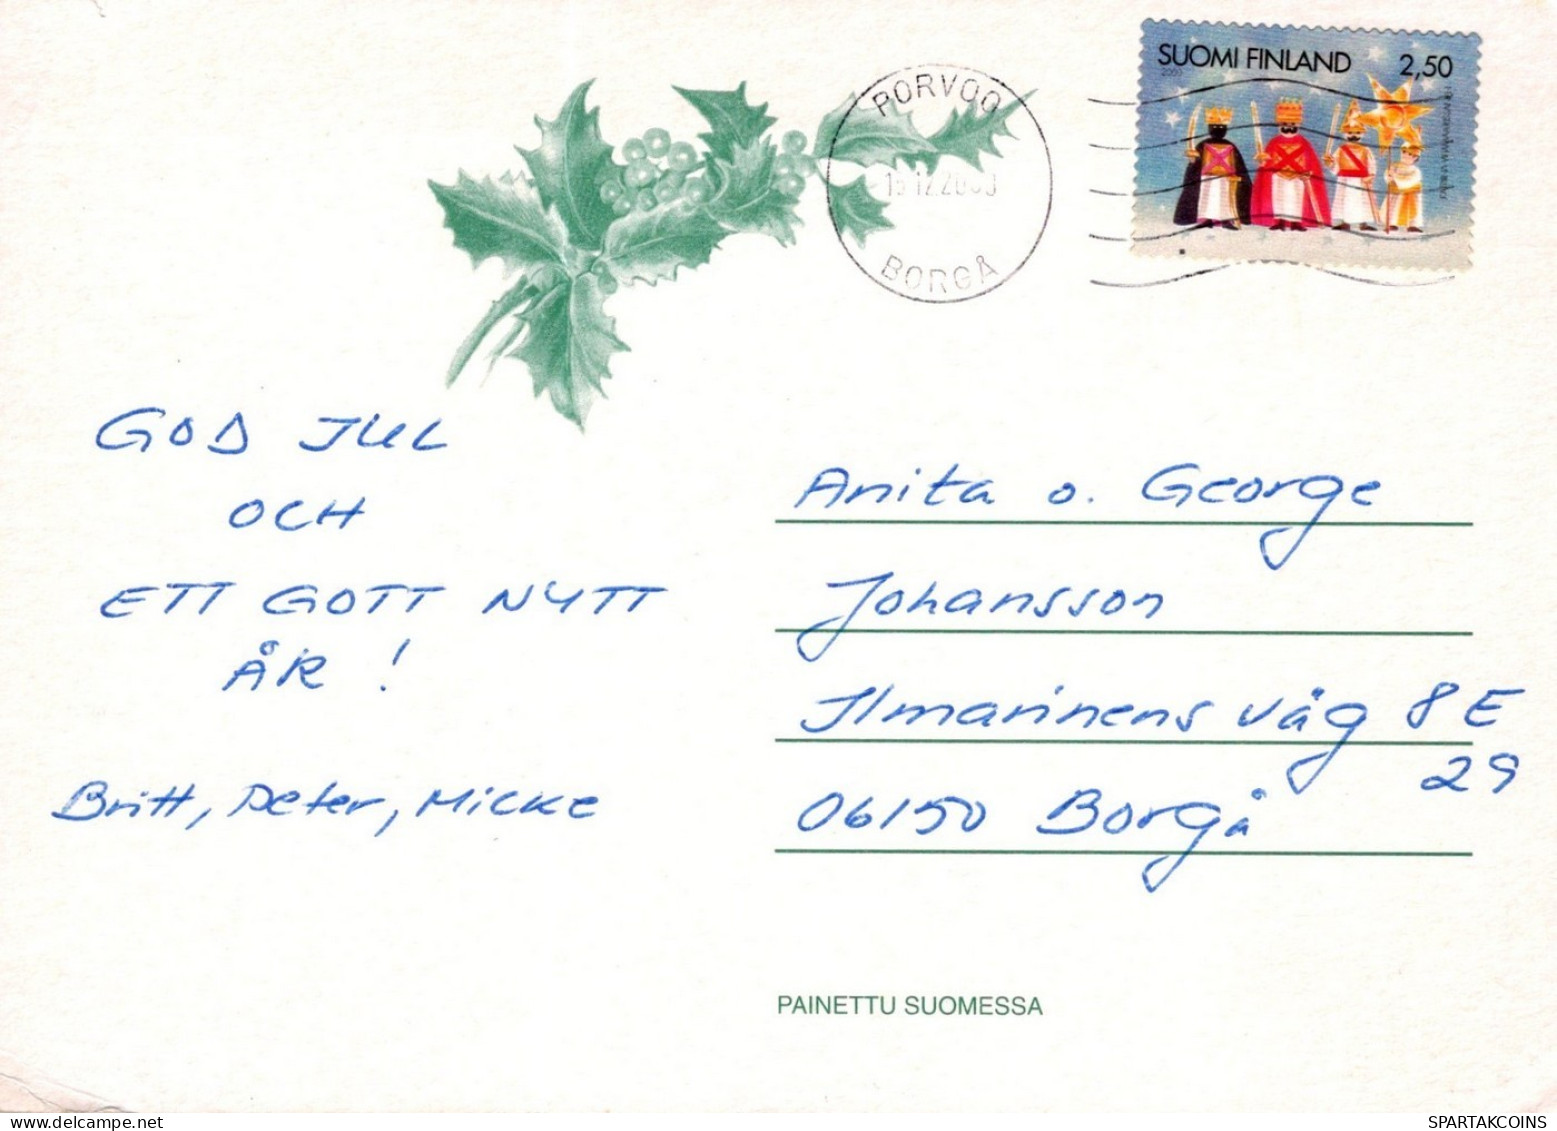 SUOMI FINLAND 2,50
2000
PORVOO
12.2000
BORGÅ
GOD JUL
OCH
ETT GOTT NYTT
ÅR !
Britt, Peter, Micke
Anita o. George
Johansson
Ilmarinens väg 8 E
29
06150 Borgå
PAINETTU SUOMESSA
SPARTAKCOINS